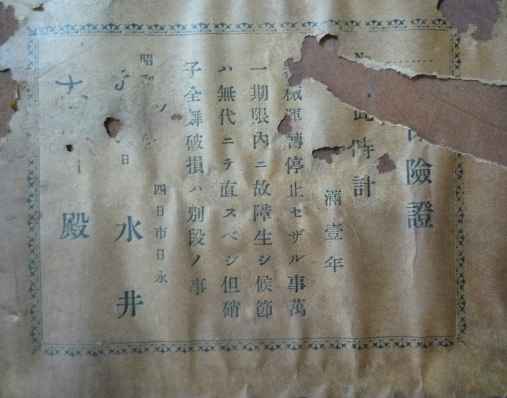 險證
No
此時計
滿壹年
械運轉停止セザル事萬
一期限內ニ故障生シ候節
ハ無代ニテ直スベシ但硝
子全舞破損ハ別段ノ事
昭
日
四日市日永
水井
殿